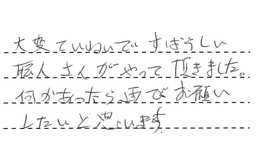 大変ていねいで、すばらしい
職人さんがやって頂きました。
何かあったら再びお願い
したいと思います